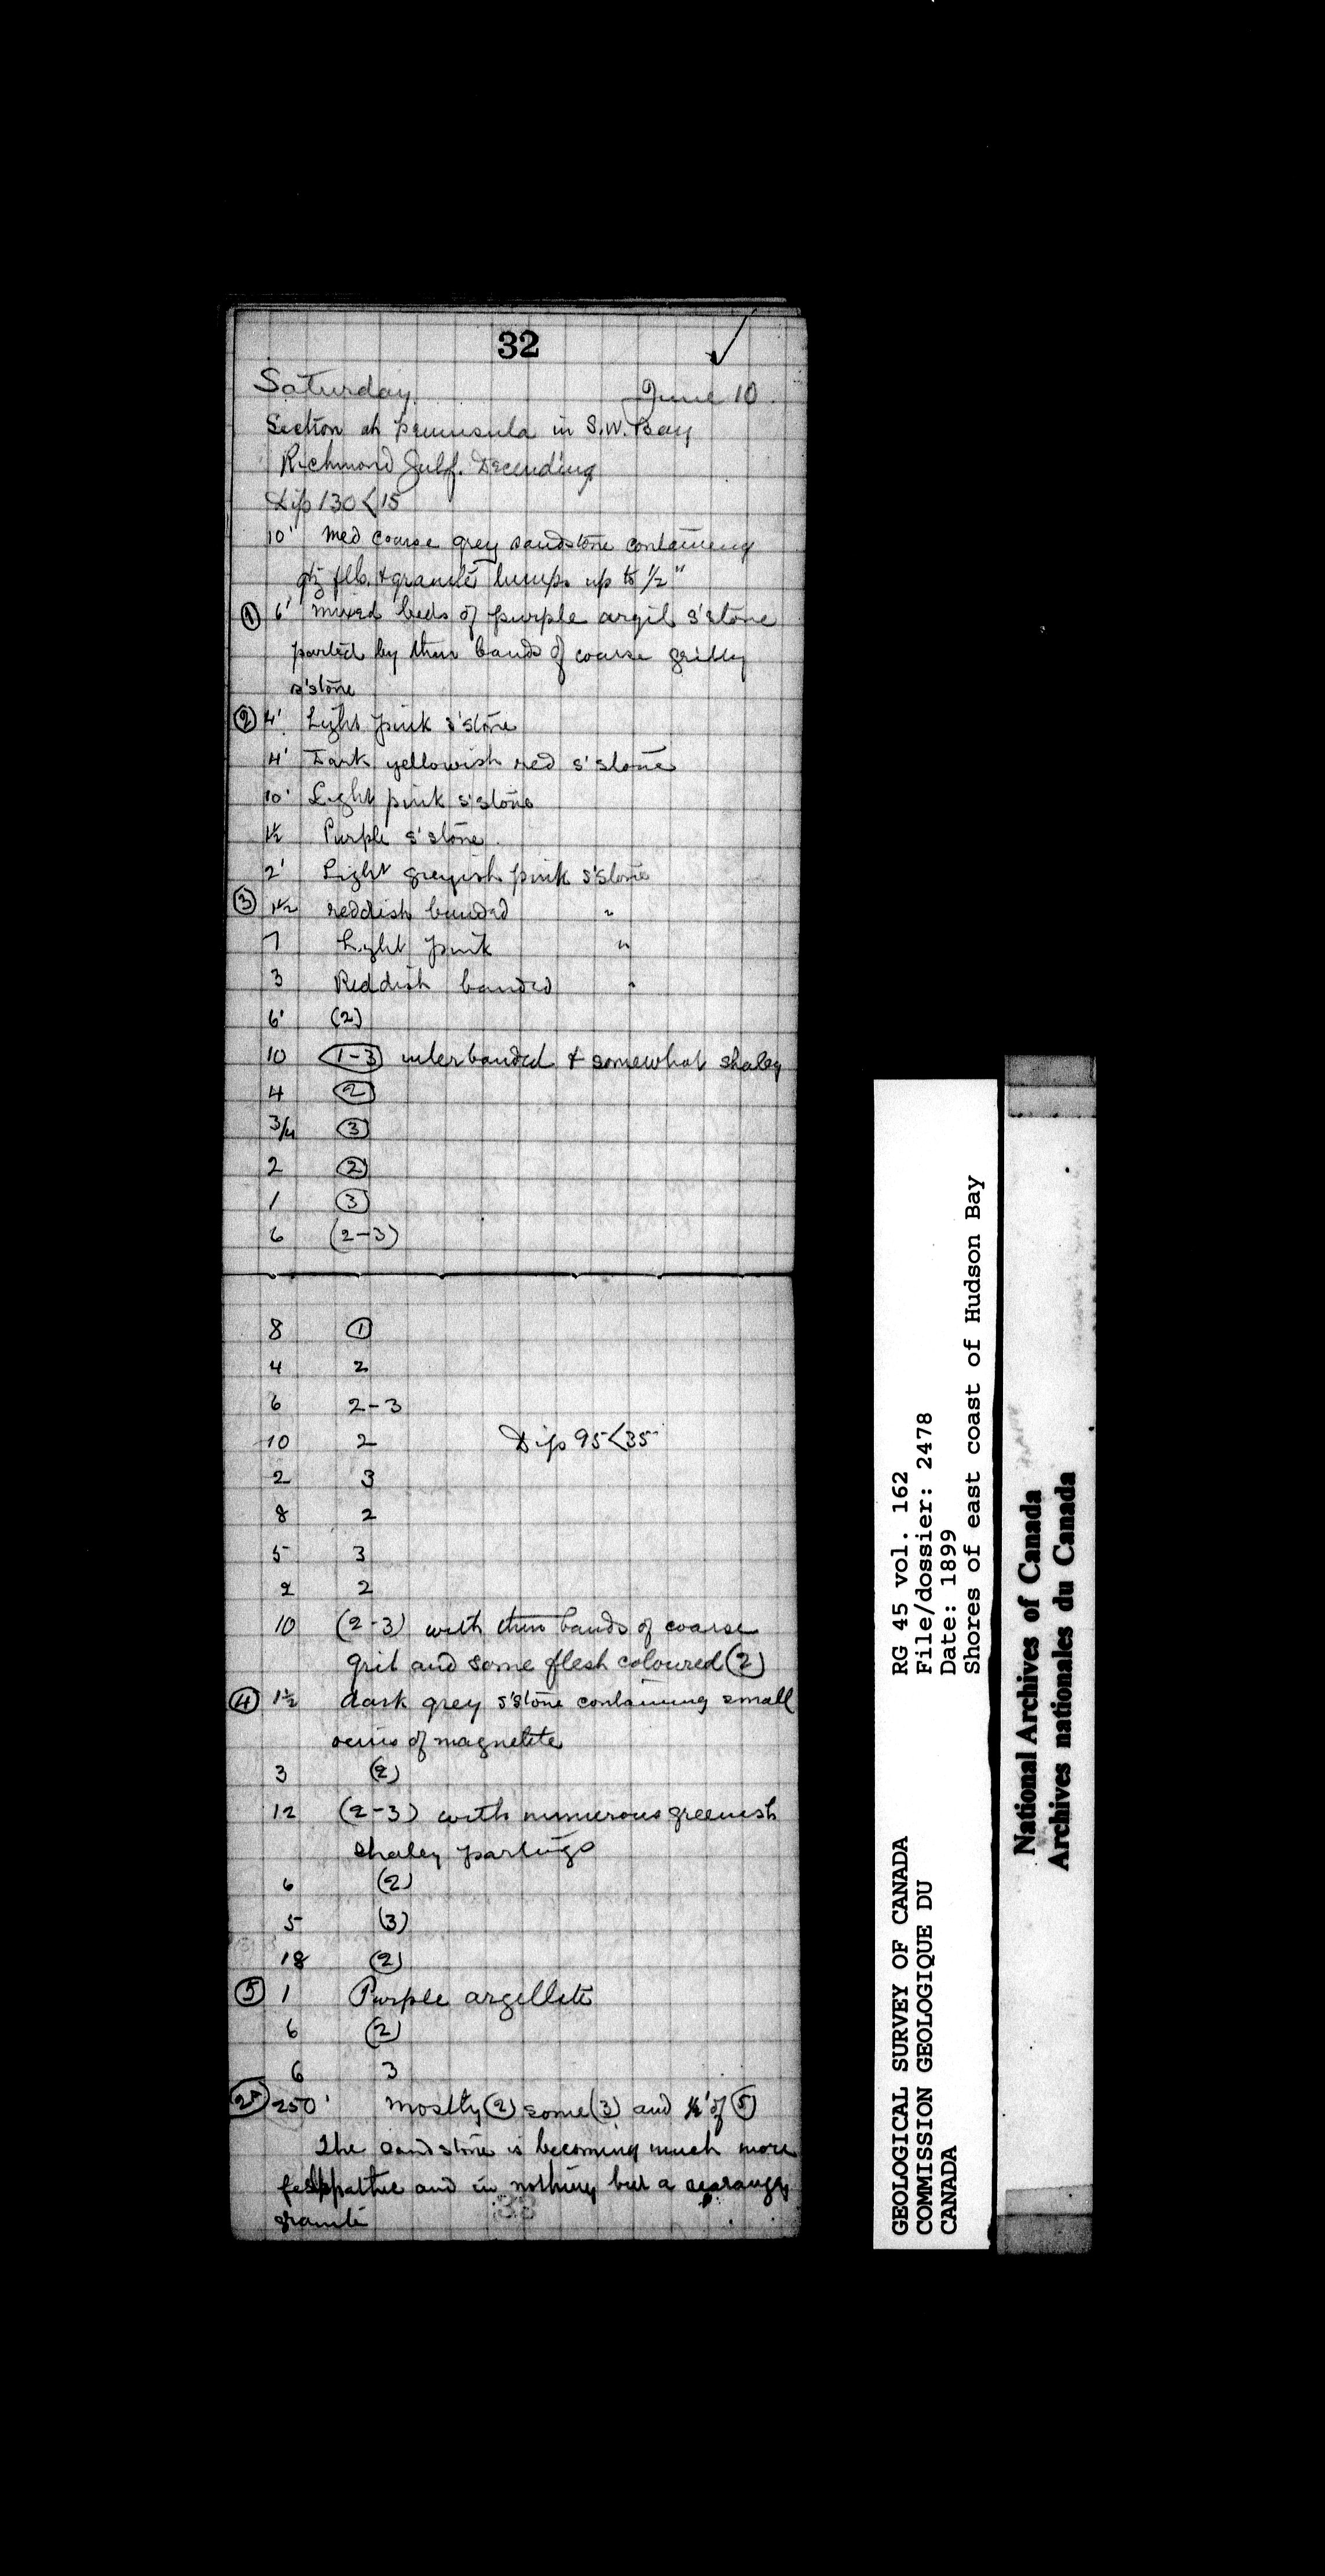 32
Saturday June 10
Section at peninsula in S.W. Bay
Richmond Gulf. Decending
Dip 130<15
10' med coarse grey sandstone containing
qtz flb. & granite lumps up to 1/2"
① 6' mixed beds of purple argil s'stone
parted by thin bands of coarse gritty
s'stone
② 4' Light pink s'stone
4' Dark yellowish red s'stone
10' Light pink s'stone
1½ Purple s'stone
2' Light greyish pink s'stone
③ 1½ reddish banded "
7 Light pink "
3 Reddish banded "
6' (2)
10 (1-3) interbanded & somewhat shaley
4 ②
3/4 ③
2 ②
1 ③
6 (2-3)
8 ①
4 2
6 2-3
10 2 Dip 95<35
2 3
8 2
5 3
2 2
10 (2-3) with thin bands of coarse
grit and some flesh coloured (2)
④ 1½ dark grey s'stone containing small
veins of magnetite
3 (2)
12 (2-3) with numerous greenish
shaley partings
6 (2)
5 (3)
18 (2)
⑤ 1 Purple argellite
6 (2)
6 3
250' mostly (2) some (3) and of ⑤
The sandstone is becoming much more
felspathic and in nothing but a
granite
33
GEOLOGICAL SURVEY OF CANADA RG 45 vol. 162
COMMISSION GEOLOGIQUE DU File/dossier: 2478
CANADA Date: 1899
Shores of east coast of Hudson Bay
National Archives of Canada
Archives nationales du Canada